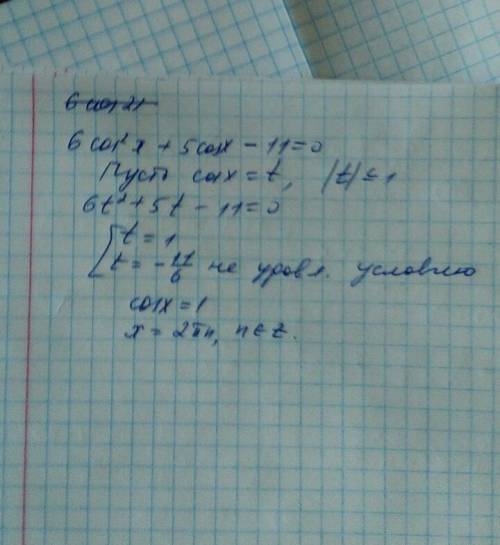 6 cos²x + 5cosx - 11 = 0
Пусть cosx = t, |t| ≤ 1
6t² + 5t - 11 = 0
[t = 1
t = -11/6 не удовл. условию
cosx = 1
x = 2πn, n ∈ Z.